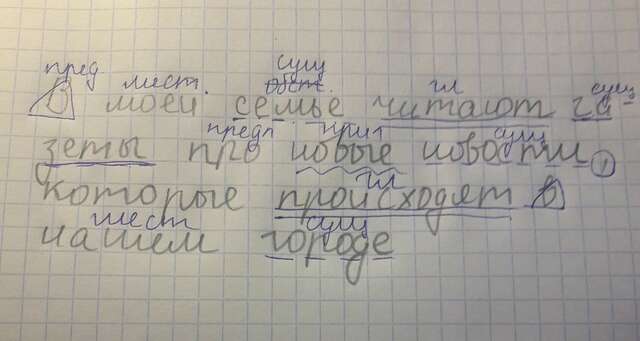 пред мест. сущ гл сущ
обст.
В моей семье читают га-
зеты про новые новости,
предл прил сущ
которые происходят в
гл
нашем городе
мест сущ